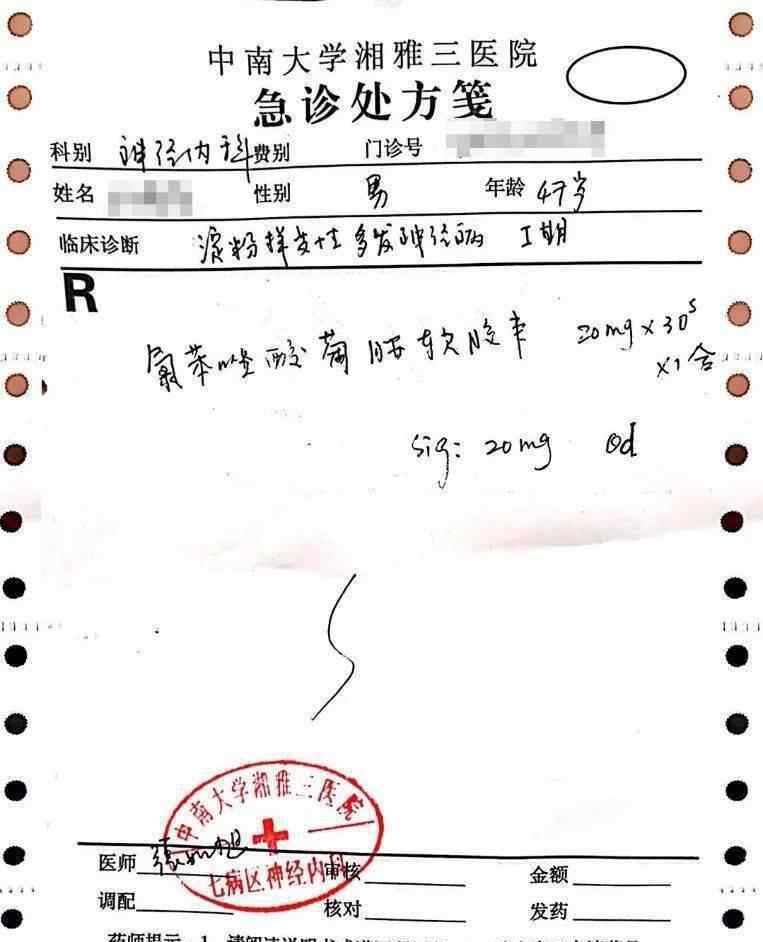 中南大学湘雅三医院
急诊处方笺
科别 神经内科 费别 门诊号
姓名 性别 男 年龄 47岁
临床诊断 淀粉样变性多发神经病 I期
R
氯苯唑酸葡胺软胶囊 20mg×30s
×1盒
Sig: 20mg Qd
中南大学湘雅三医院
七病区神经内科
医师 审核 金额
调配 核对 发药